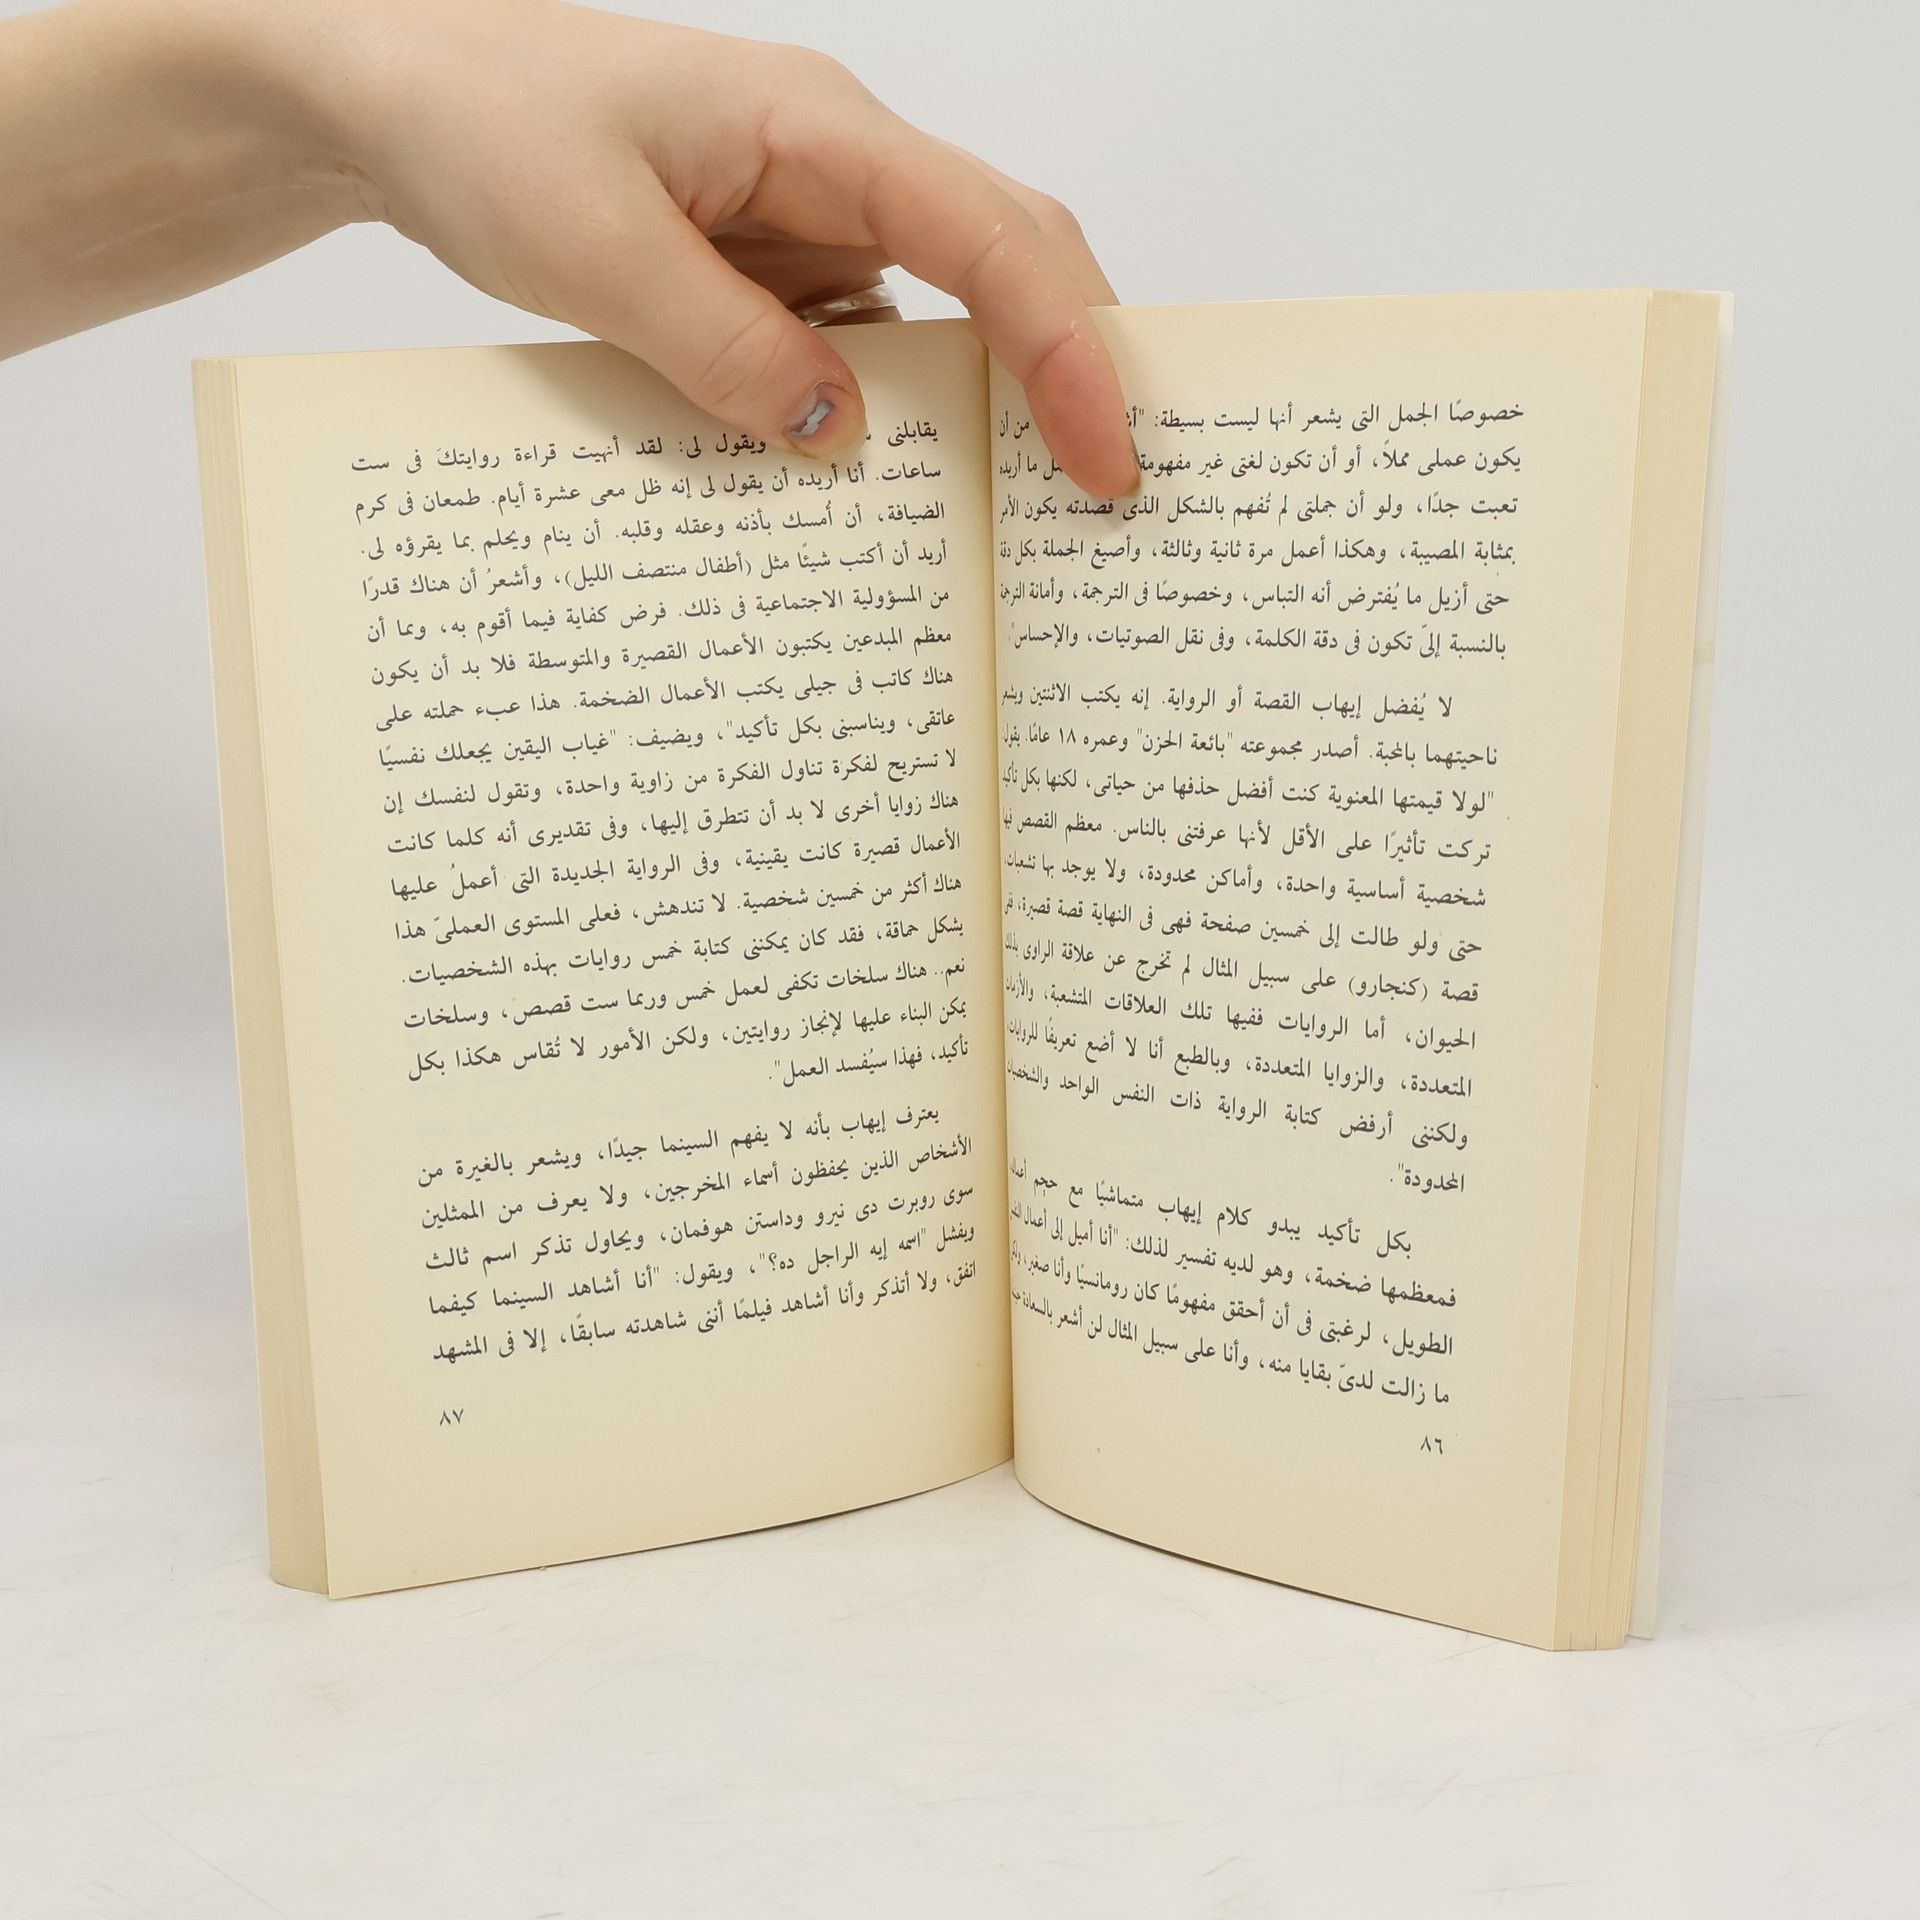 خصوصًا الجمل التى يشعر أنها ليست بسيطة: من أن
يكون عملى مملاً، أو أن تكون لغتى غير مفهومة ما أريده
تعبت جدًا، ولو أن جملتى لم تُفهم بالشكل الذى قصدته يكون الأمر
بمثابة المصيبة، وهكذا أعمل مرة ثانية وثالثة، وأصيغ الجملة بكل دقة
حتى أزيل ما يُفترض أنه التباس، وخصوصًا فى الترجمة، وأمانة الترجمة
بالنسبة إلىّ تكون فى دقة الكلمة، وفى نقل الصوتيات، والإحساس".
لا يُفضل إيهاب القصة أو الرواية. إنه يكتب الاثنتين ويشعر
ناحيتهما بالمحبة. أصدر مجموعته "بائعة الحزن" وعمره ١٨ عامًا. يقول:
"لولا قيمتها المعنوية كنت أفضل حذفها من حياتى، لكنها بكل تأكيد
تركت تأثيرًا على الأقل لأنها عرفتنى بالناس. معظم القصص فيها
شخصية أساسية واحدة، وأماكن محدودة، ولا يوجد بها تشعبات،
حتى ولو طالت إلى خمسين صفحة فهى فى النهاية قصة قصيرة، ففى
قصة (كنجارو) على سبيل المثال لم تخرج عن علاقة الراوى بذلك
الحيوان، أما الروايات ففيها تلك العلاقات المتشعبة، والأزمات
المتعددة، والزوايا المتعددة، وبالطبع أنا لا أضع تعريفًا للروايات،
ولكننى أرفض كتابة الرواية ذات النفس الواحد والشخصيات
المحدودة".
بكل تأكيد يبدو كلام إيهاب متماشيًا مع حجم أعماله
فمعظمها ضخمة، وهو لديه تفسير لذلك: "أنا أميل إلى أعمال النفس
الطويل، لرغبتى فى أن أحقق مفهومًا كان رومانسيًا وأنا صغير،
ما زالت لدىّ بقايا منه، وأنا على سبيل المثال لن أشعر بالسعادة
٨٦
يقابلنى ويقول لى: لقد أنهيت قراءة روايتكَ فى ست
ساعات. أنا أريده أن يقول لى إنه ظل معى عشرة أيام. طمعان فى كرم
الضيافة، أن أُمسك بأذنه وعقله وقلبه. أن ينام ويحلم بما يقرؤه لى.
أريد أن أكتب شيئًا مثل (أطفال منتصف الليل)، وأشعرُ أن هناك قدرًا
من المسؤولية الاجتماعية فى ذلك. فرض كفاية فيما أقوم به، وبما أن
معظم المبدعين يكتبون الأعمال القصيرة والمتوسطة فلا بد أن يكون
هناك كاتب فى جيلى يكتب الأعمال الضخمة. هذا عبء حملته على
عاتقى، ويناسبنى بكل تأكيد"، ويضيف: "غياب اليقين يجعلك نفسيًا
لا تستريح لفكرة تناول الفكرة من زاوية واحدة، وتقول لنفسك إن
هناك زوايا أخرى لا بد أن تتطرق إليها، وفى تقديرى أنه كلما كانت
الأعمال قصيرة كانت يقينية، وفى الرواية الجديدة التى أعملُ عليها
هناك أكثر من خمسين شخصية. لا تندهش، فعلى المستوى العملىّ هذا
يشكل حماقة، فقد كان يمكننى كتابة خمس روايات بهذه الشخصيات.
نعم.. هناك سلخات تكفى لعمل خمس وربما ست قصص، وسلخات
يمكن البناء عليها لإنجاز روايتين، ولكن الأمور لا تُقاس هكذا بكل
تأكيد، فهذا سيُفسد العمل".
يعترف إيهاب بأنه لا يفهم السينما جيدًا، ويشعر بالغيرة من
الأشخاص الذين يحفظون أسماء المخرجين، ولا يعرف من الممثلين
سوى روبرت دى نيرو وداستن هوفمان، ويحاول تذكر اسم ثالث
ويفشل "اسمه إيه الراجل ده؟"، ويقول: "أنا أشاهد السينما كيفما
اتفق، ولا أتذكر وأنا أشاهد فيلمًا أننى شاهدته سابقًا، إلا فى المشهد
٨٧